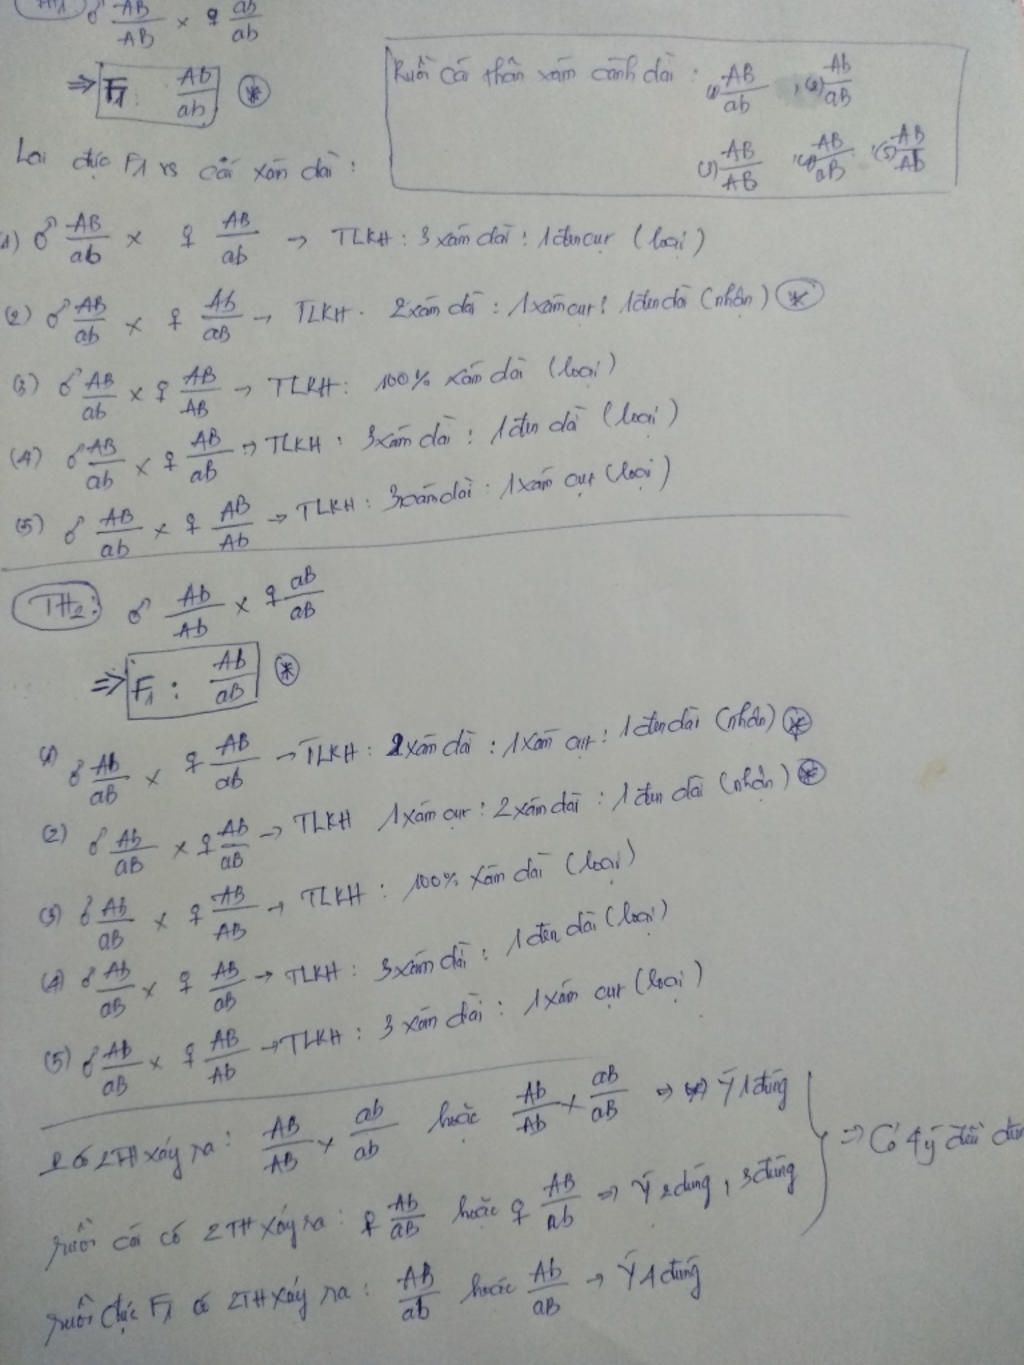 TH1 ♂ AB/AB × ♀ ab/ab
⇒ F1: Ab/ab *
Ruồi cái thân xám cánh dài: (1) AB/ab, (2) Ab/aB
(3) AB/AB, (4) AB/aB, (5) AB/Ab
Lai đực F1 vs cái xám dài:
(1) ♂ AB/ab × ♀ AB/ab → TLKH: 3 xám dài: 1 đen cụt (loại)
(2) ♂ AB/ab × ♀ Ab/aB → TLKH: 2 xám dài: 1 xám cụt: 1 đen dài (nhận) *
(3) ♂ AB/ab × ♀ AB/AB → TLKH: 100% xám dài (loại)
(4) ♂ AB/ab × ♀ AB/aB → TLKH: 3 xám dài: 1 đen dài (loại)
(5) ♂ AB/ab × ♀ AB/Ab → TLKH: 3 xám dài: 1 xám cụt (loại)
TH2: ♂ Ab/Ab × ♀ aB/aB
⇒ F1: Ab/aB *
(1) ♂ Ab/aB × ♀ AB/ab → TLKH: 2 xám dài: 1 xám cụt: 1 đen dài (nhận) *
(2) ♂ Ab/aB × ♀ Ab/aB → TLKH 1 xám cụt: 2 xám dài: 1 đen dài (nhận) *
(3) ♂ Ab/aB × ♀ AB/AB → TLKH: 100% xám dài (loại)
(4) ♂ Ab/aB × ♀ AB/aB → TLKH: 3 xám dài: 1 đen dài (loại)
(5) ♂ Ab/aB × ♀ AB/Ab → TLKH: 3 xám dài: 1 xám cụt (loại)
có 2TH xảy ra: AB/AB × ab/ab hoặc Ab/Ab × aB/aB ⇒ Ý 1 đúng
ruồi cái có 2TH xảy ra: ♀ Ab/aB hoặc ♀ AB/ab ⇒ Ý 2 đúng, 3 đúng
⇒ Có 4 ý đều
ruồi đực F1 có 2TH xảy ra: AB/ab hoặc Ab/aB → Ý 4 đúng